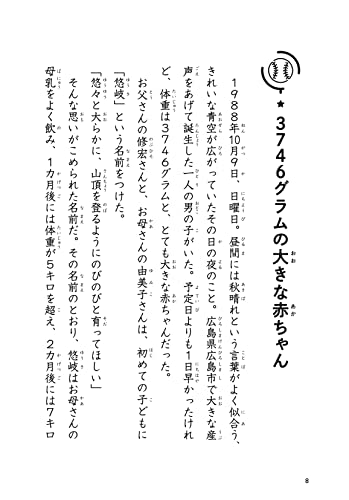 3746グラムの大きな赤ちゃん
1988年10月9日、日曜日。昼間には秋晴れという言葉がよく似合う、
きれいな青空が広がっていたその日の夜のこと。広島県広島市で大きな産
声をあげて誕生した一人の男の子がいた。予定日よりも1日早かったけれ
ど、体重は3746グラムと、とても大きな赤ちゃんだった。
お父さんの修宏さんと、お母さんの由美子さんは、初めての子どもに
「悠岐」という名前をつけた。
「悠々と大らかに、山頂を登るようにのびのびと育ってほしい」
そんな思いがこめられた名前だ。その名前のとおり、悠岐はお母さんの
母乳をよく飲み、1カ月後には体重が5キロを超え、2カ月後には7キロ
8